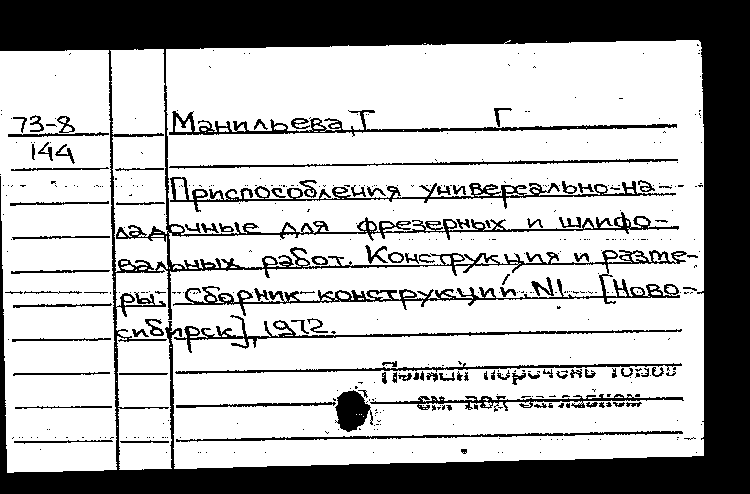 73-8 Манильева, Т Г
144
Приспособления универсально-на-
ладочные для фрезерных и шлифо-
вальных работ. Конструкция и разме-
ры. Сборник конструкций. N1. [Ново-
сибирск], 1972.
Полный перечень томов
см. под заглавием